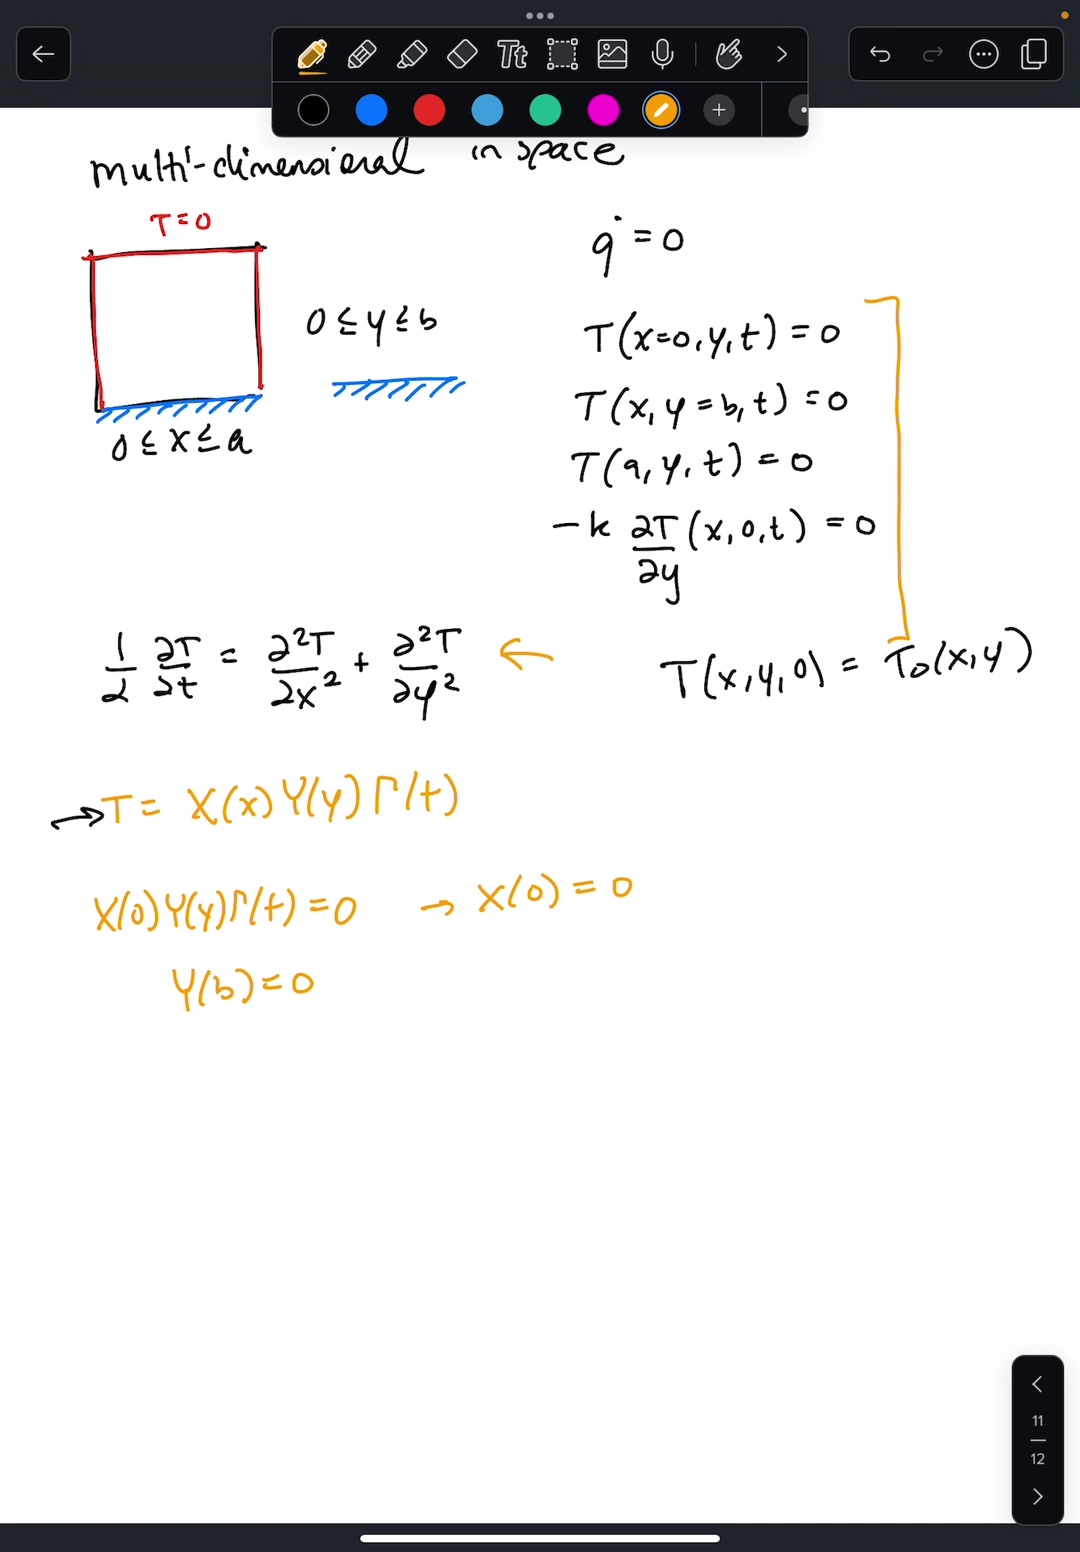 Tt
multi-dimensional in space
T=0
q̇ = 0
0 ≤ y ≤ b
T(x=0, y, t) = 0
T(x, y=b, t) = 0
0 ≤ x ≤ a
T(a, y, t) = 0
-k ∂T/∂y (x, 0, t) = 0
1/α ∂T/∂t = ∂²T/∂x² + ∂²T/∂y² ←
T(x, y, 0) = T₀(x, y)
→ T = X(x) Y(y) Γ(t)
X(0) Y(y) Γ(t) = 0 → X(0) = 0
Y(b) = 0
11
12